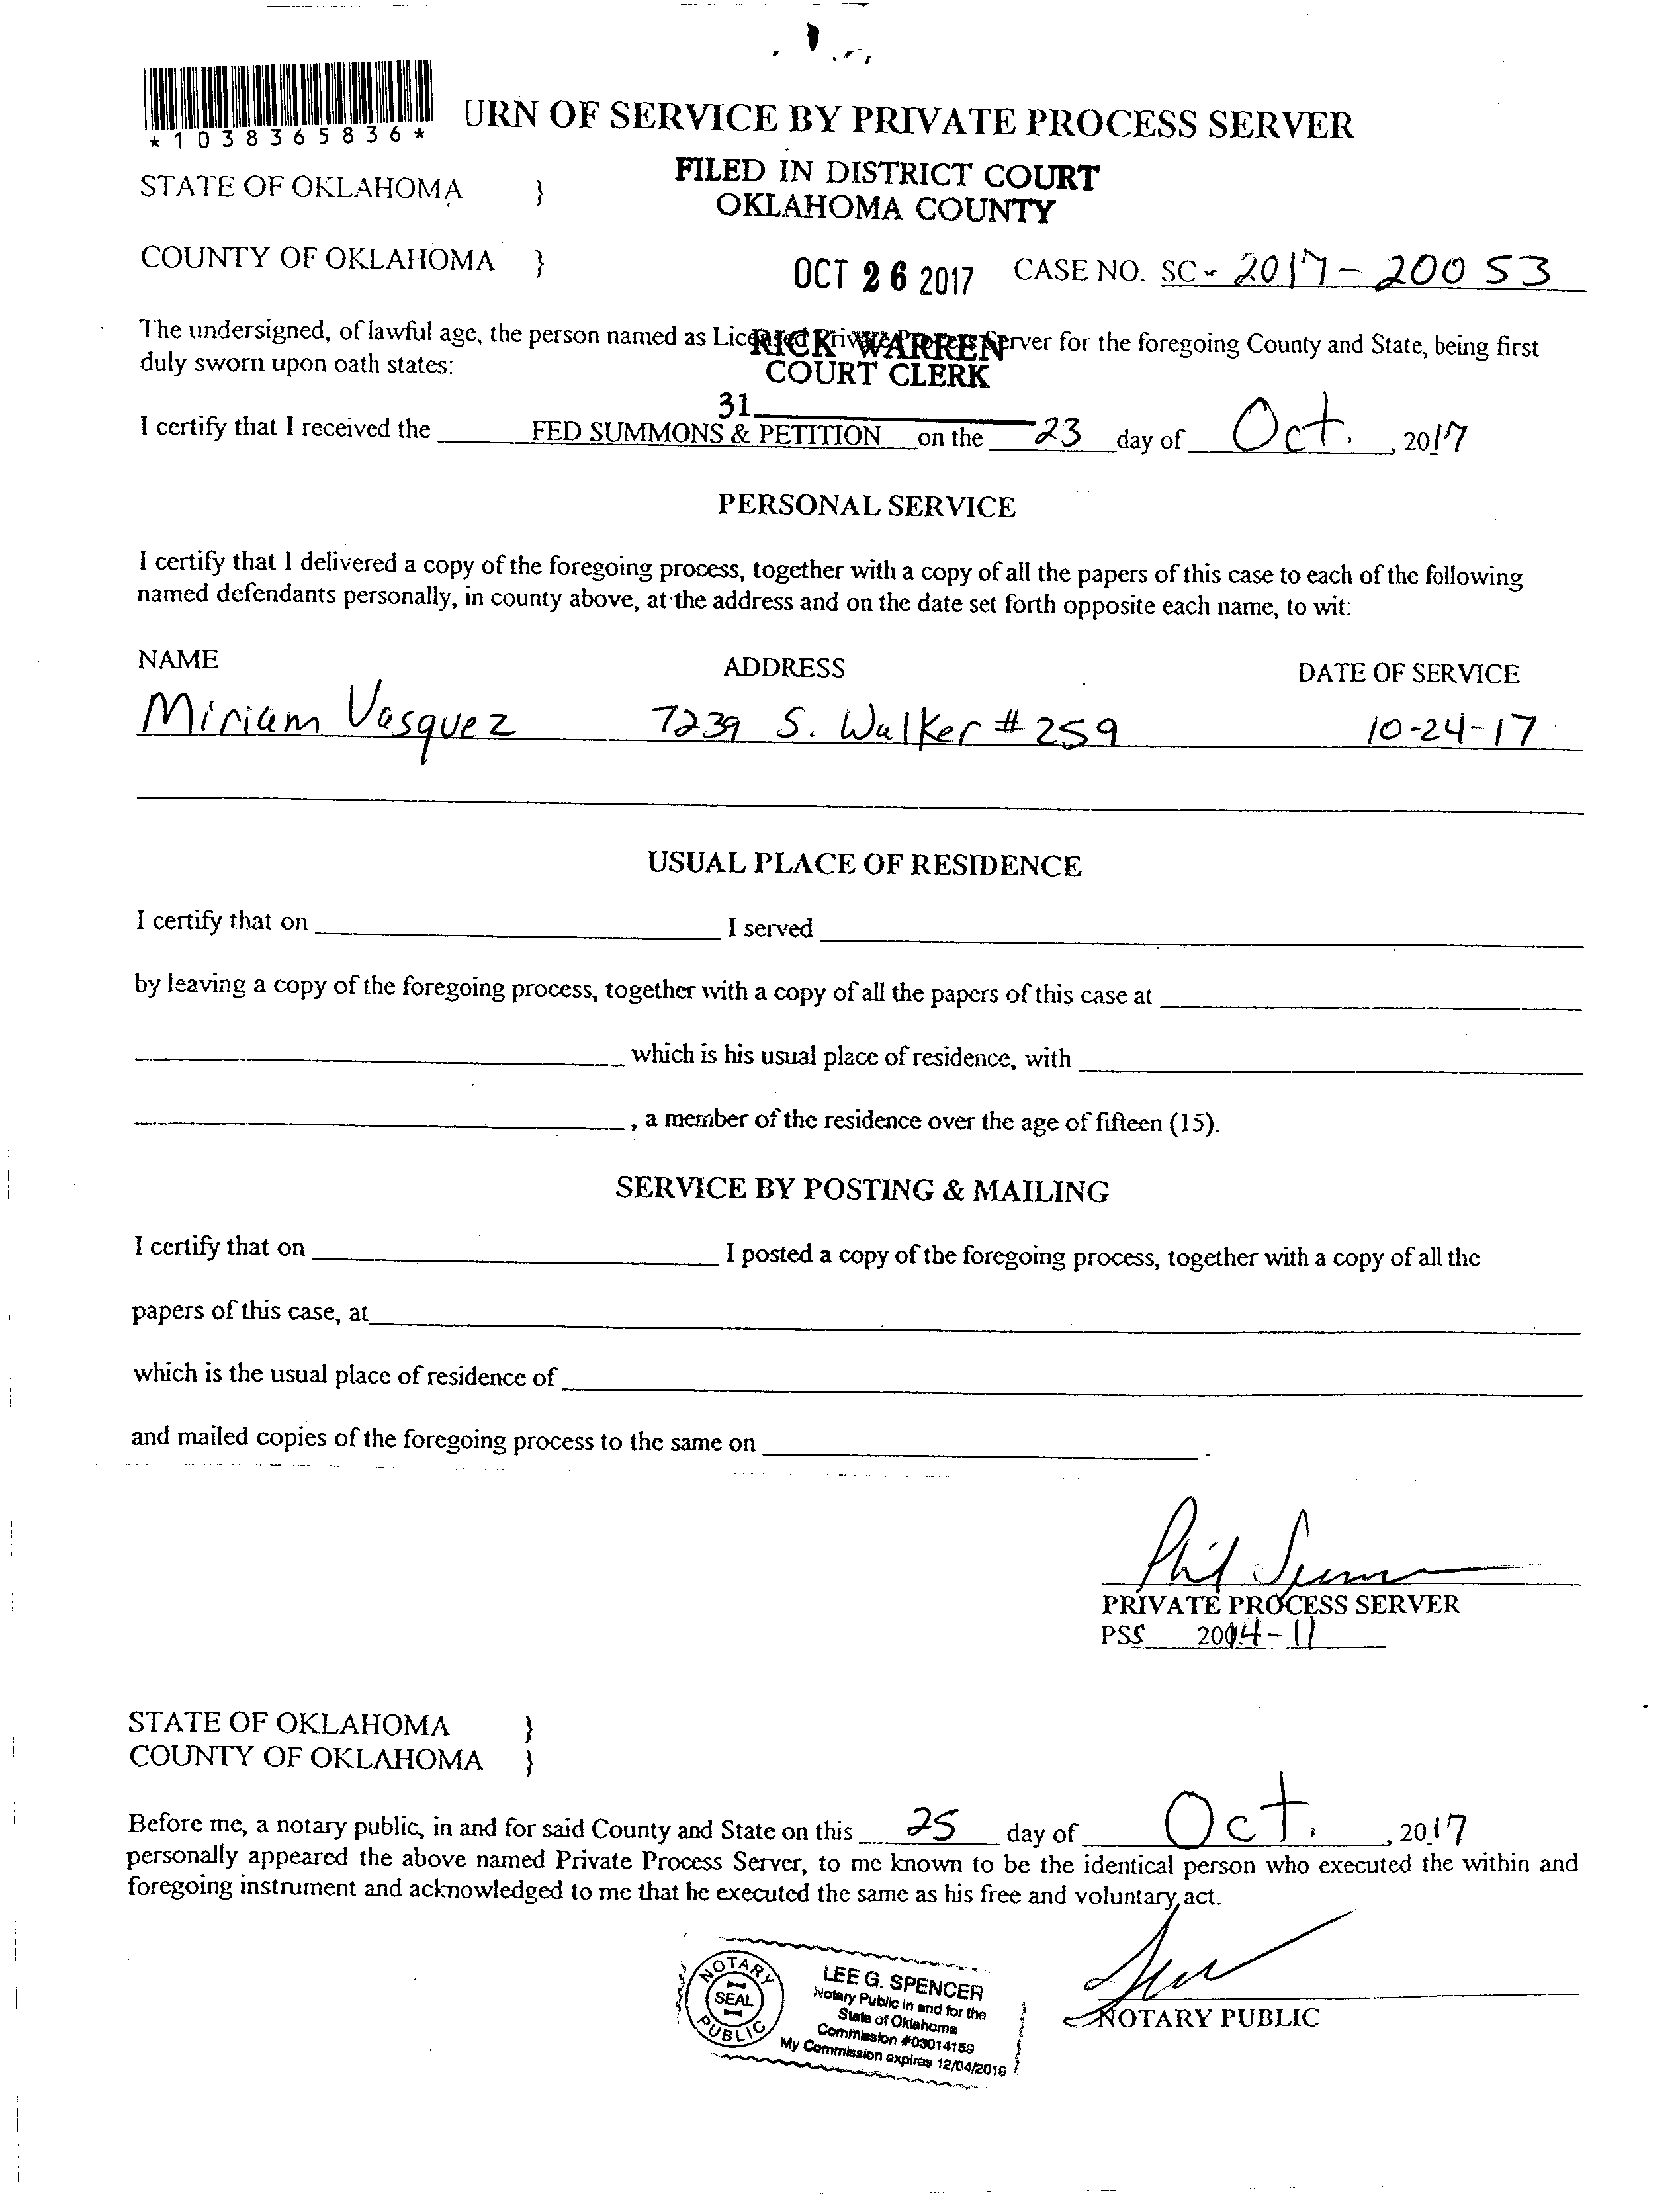 *1038365836*
URN OF SERVICE BY PRIVATE PROCESS SERVER
FILED IN DISTRICT COURT
OKLAHOMA COUNTY
STATE OF OKLAHOMA }
COUNTY OF OKLAHOMA }
OCT 26 2017 CASE NO. SC - 2017-20053
The undersigned, of lawful age, the person named as Licensed Private Process Server for the foregoing County and State, being first
duly sworn upon oath states:
RICK WARREN
COURT CLERK
31
I certify that I received the FED SUMMONS & PETITION on the 23 day of Oct. , 2017
PERSONAL SERVICE
I certify that I delivered a copy of the foregoing process, together with a copy of all the papers of this case to each of the following
named defendants personally, in county above, at the address and on the date set forth opposite each name, to wit:
NAME ADDRESS DATE OF SERVICE
Miriam Vasquez 7239 S. Walker #259 10-24-17
USUAL PLACE OF RESIDENCE
I certify that on I served
by leaving a copy of the foregoing process, together with a copy of all the papers of this case at
which is his usual place of residence, with
, a member of the residence over the age of fifteen (15).
SERVICE BY POSTING & MAILING
I certify that on I posted a copy of the foregoing process, together with a copy of all the
papers of this case, at
which is the usual place of residence of
and mailed copies of the foregoing process to the same on .
Phil
PRIVATE PROCESS SERVER
PSS 2014-11
STATE OF OKLAHOMA }
COUNTY OF OKLAHOMA }
Before me, a notary public, in and for said County and State on this 25 day of Oct. , 2017
personally appeared the above named Private Process Server, to me known to be the identical person who executed the within and
foregoing instrument and acknowledged to me that he executed the same as his free and voluntary act.
NOTARY PUBLIC
SEAL
LEE G. SPENCER
Notary Public in and for the
State of Oklahoma
Commission #03014159
My Commission expires 12/04/2019
NOTARY PUBLIC